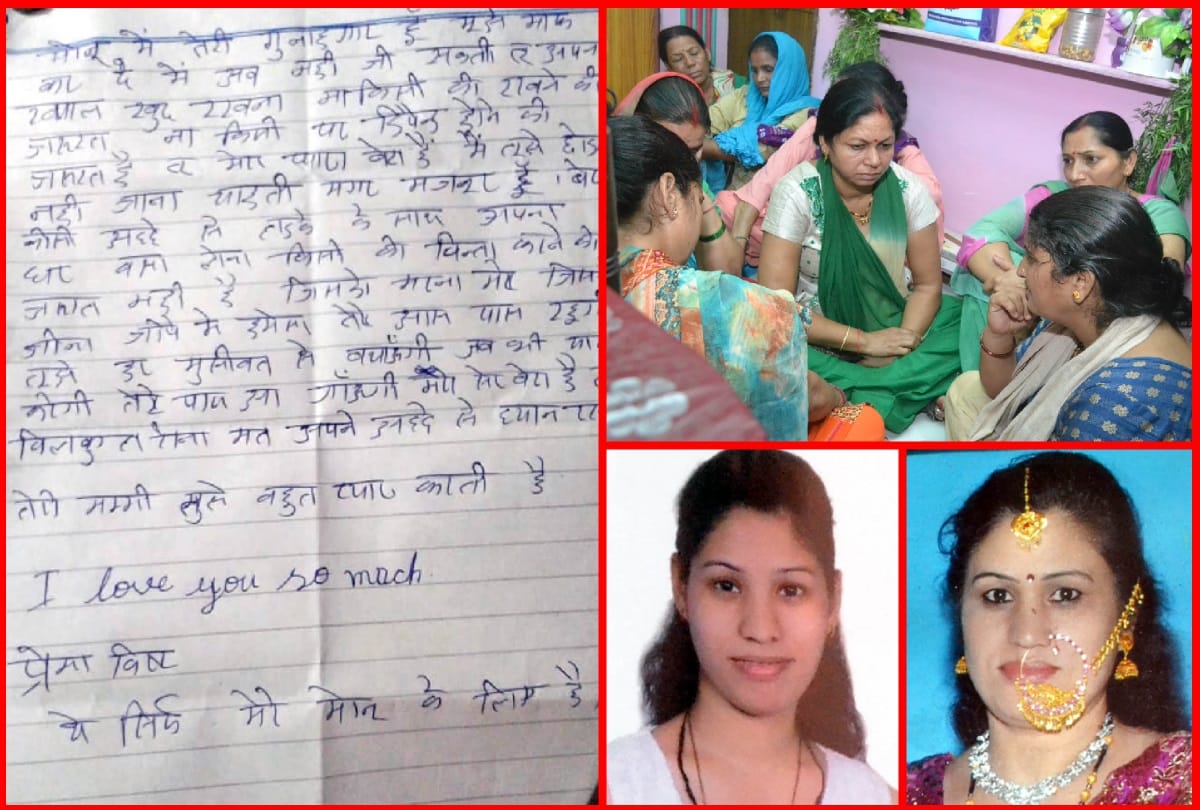 में तेरी गुनाहगार हूँ मुझे माफ
कर दे में अब नही जी सकती र अपन
ख्याल खुद रखना ना किसी को रखने की
जरूरत ना किसी पर डिपेंड होने की
जरूरत है र मेरा प्यारा बेटा है मैं तुझे छोड
नही जाना चाहती मगर मजबूर हूँ।
कीसी अच्छे से लडके के साथ अपना
घर बसा लेना किसी की चिन्ता करने की
जरूरत नही है जिसको मरना मरे
जीना जीये मे हमेशा तेरे आस पास
तुझे हर मुसीबत से बचाऊँगी जब भी
करेगी तेरे पास आ जाँऊगी मेरा शेर बेटा है
बिलकुल रोना मत अपने अच्छे से ध्यान
तेरी मम्मी तुझे बहुत प्यार करती है
I love you so mach.
प्रेमा बिष्ट
ये सिर्फ मेरे मोनू के लिए है